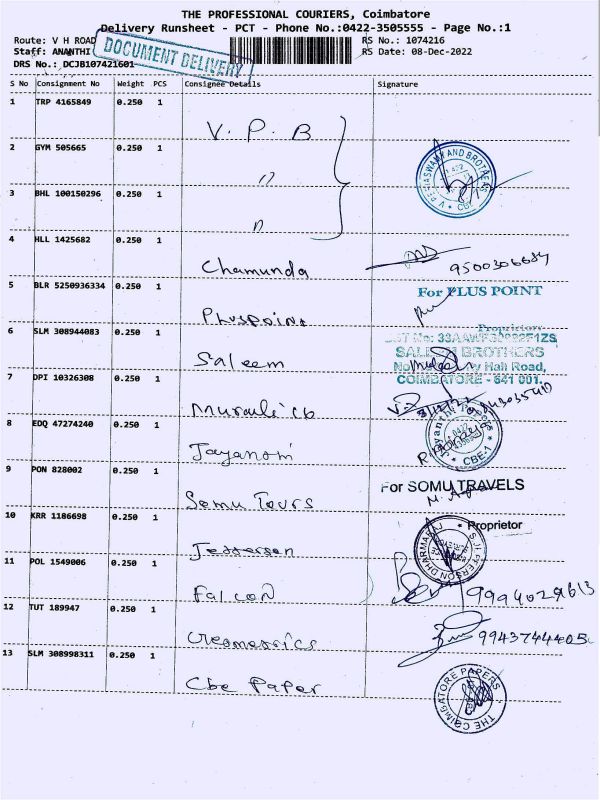 THE PROFESSIONAL COURIERS, Coimbatore
Delivery Runsheet - PCT - Phone No.:0422-3505555 - Page No.:1
Route: V H ROAD RS No.: 1074216
Staff: ANANTHI RS Date: 08-Dec-2022
DRS No.: DCJB107421601
DOCUMENT DELIVERY
S No Consignment No Weight PCS Consignee Details Signature
1 TRP 4165849 0.250 1 V. P. B
2 GYM 505665 0.250 1 "
3 BHL 100150296 0.250 1 "
4 HLL 1425682 0.250 1 Chamunda
5 BLR 5250936334 0.250 1 Pluspoint
For PLUS POINT
Proprietor
6 SLM 308944083 0.250 1 Saleem
BROTHERS
Hall Road,
COIMBATORE - 641 001.
7 DPI 10326308 0.250 1
8 EDQ 47274240 0.250 1
CBE-1
9 PON 828002 0.250 1 Somu Tours
For SOMU TRAVELS
Proprietor
10 KRR 1186698 0.250 1
11 POL 1549006 0.250 1 Falcon
12 TUT 189947 0.250 1
13 SLM 308998311 0.250 1 Cbe Paper
THE COIMBATORE PAPERS